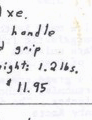 xe.
handle
d grip
ight: 1.2 lbs.
$11.95